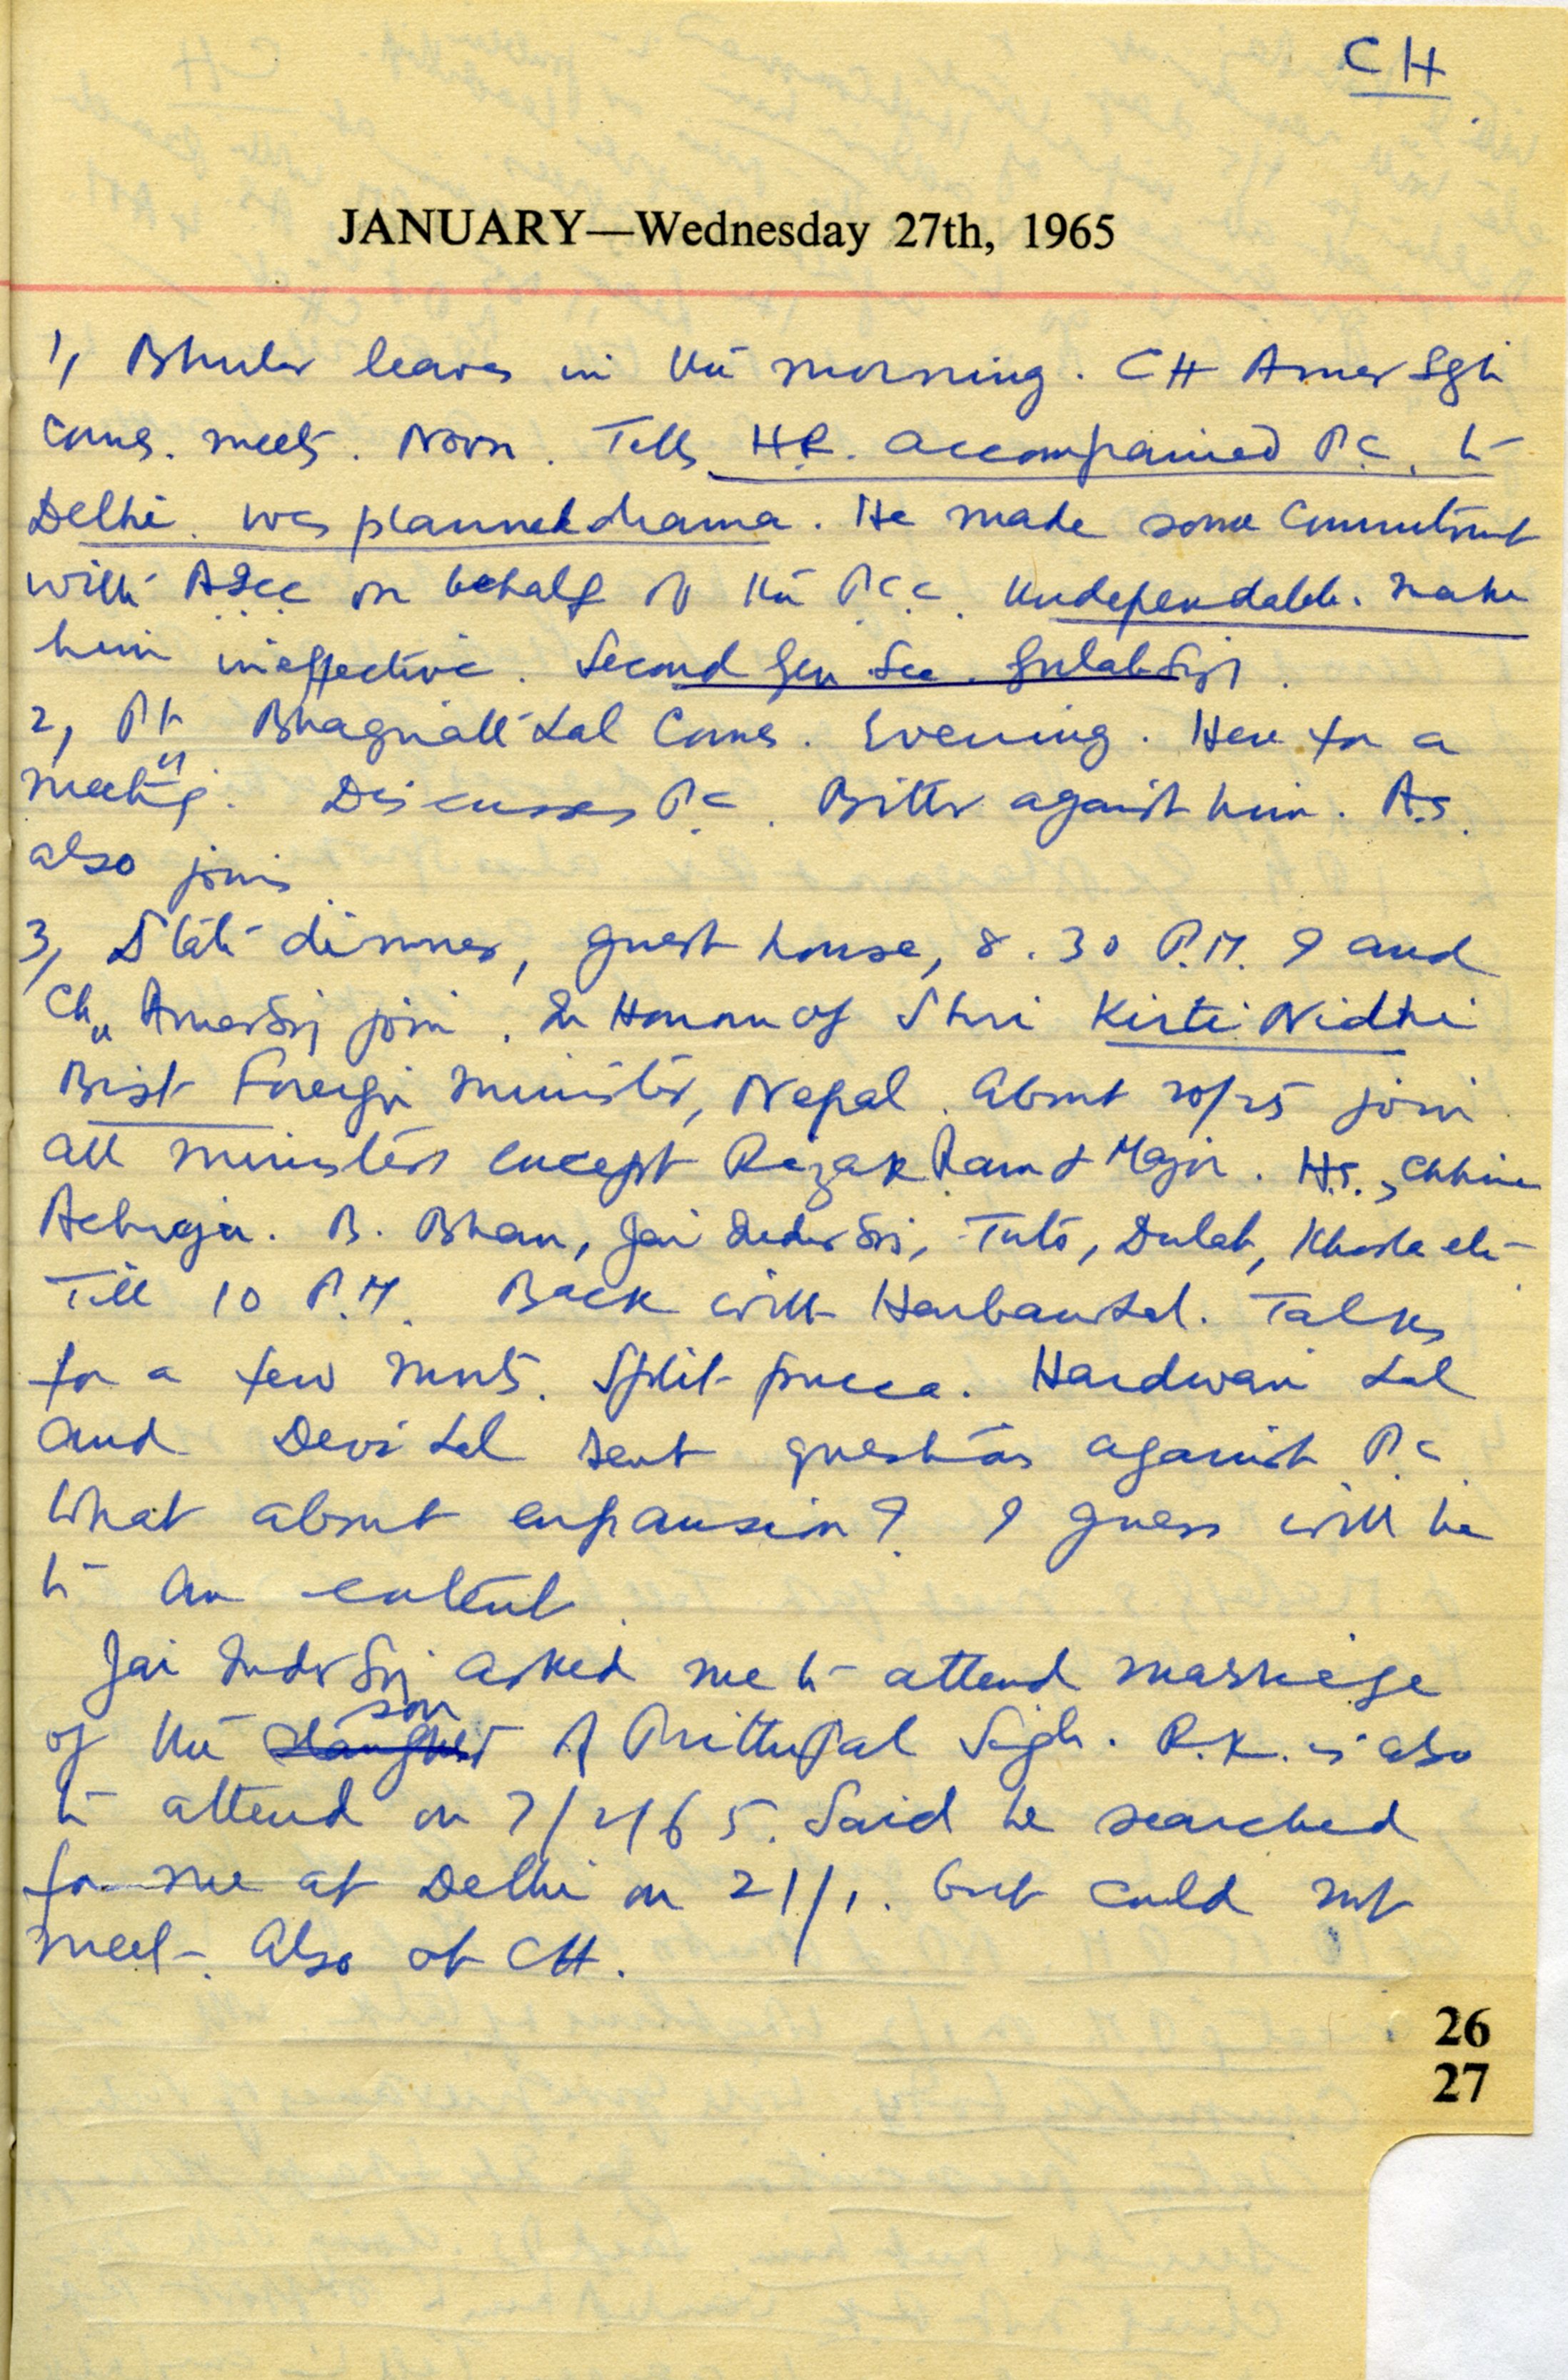 CH
JANUARY—Wednesday 27th, 1965
1, Bhuler leaves in the morning. CH Amer Sgh
comes. meets. Noon. Tells H.R. accompanied P.C. to
Delhi. was planned drama. He made some Commitment
with AICC on behalf of the P.C.C. Undependable. make
him ineffective. Second Gen Sec. Gulab Sigh.
2, Pt Bhagwath Lal Comes. Evening. Here for a
meeting. Discusses P.C. Bitter against him. A.S.
also joins
3, State dinner, guest house, 8.30 P.M. I and
Ch. Amer Sigh join. In Honour of Shri Kirti Nidhi
Bist Foreign minister, Nepal. About 20/25 join
all ministers except Rizak Ram & Major. H.S.,
B. Bhan, Jai Inder Sigh, Dulat, Khosla etc
Till 10 P.M. Back with Harbans Lal. Talks
for a few mnts. Split pucca. Hardwari Lal
and Devi Lal sent questions against P.C.
What about expansion? I guess will be
to an extent.
Jai Inder Sigh asked me to attend marriage
son
of the daughter of Prithipal Sigh. R.K. is also
to attend on 7/2/65. Said he searched
for me at Delhi on 21/1. but could not
meet. Also at CH.
26
27